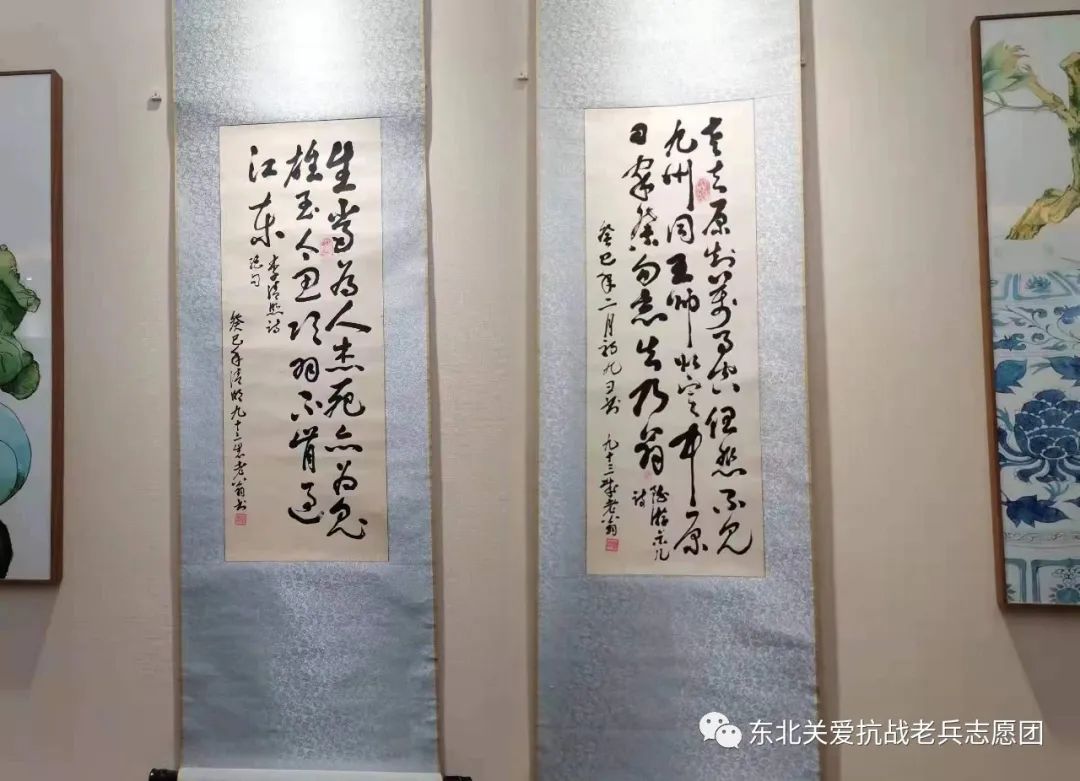 死去原知萬事空但悲不见
九州同王师北定中原
日家祭勿忘告乃翁
陆游示儿
诗
癸巳年二月初九日书 九十三岁老翁
生当为人杰死亦为鬼
雄至今思项羽不肯过
江东
李清照诗
绝句
癸巳年清明九十三岁老翁书
东北关爱抗战老兵志愿团